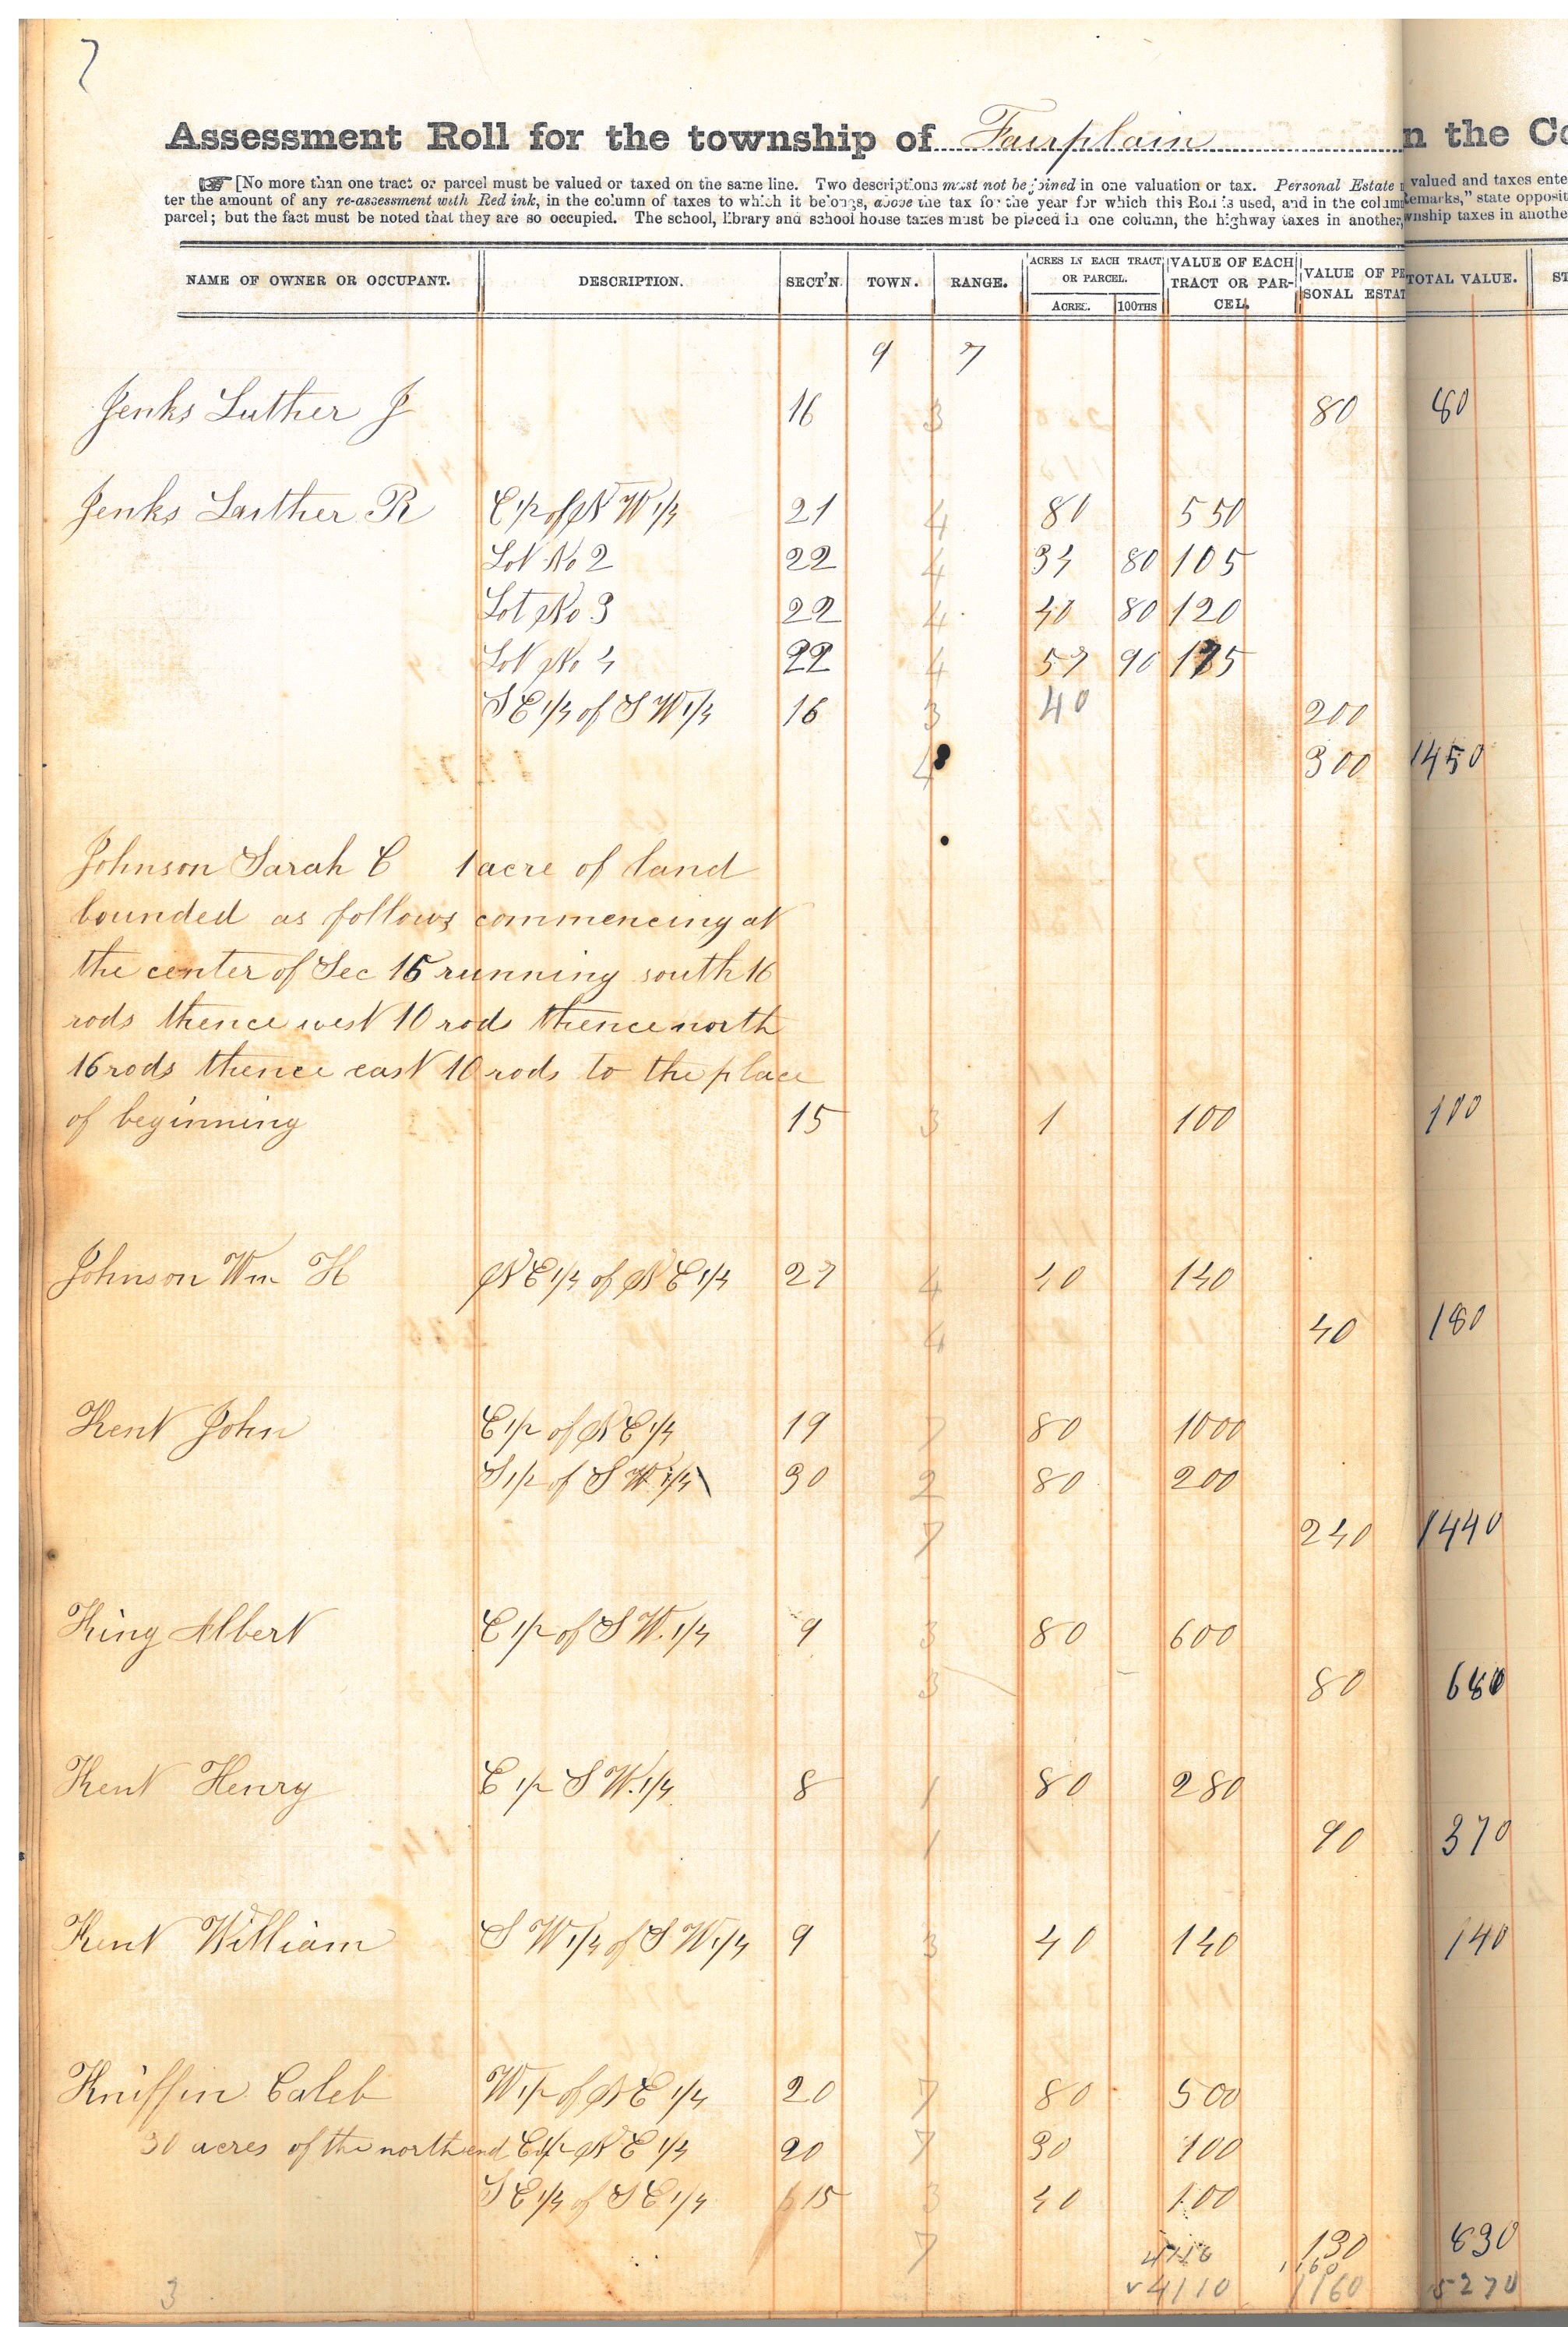 7
Assessment Roll for the township of Fairplain n the Co
[No more than one tract or parcel must be valued or taxed on the same line. Two descriptions must not be joined in one valuation or tax. Personal Estate valued and taxes ente
ter the amount of any re-assessment with Red ink, in the column of taxes to which it belongs, above the tax for the year for which this Roll is used, and in the colum emarks," state opposit
parcel; but the fact must be noted that they are so occupied. The school, library and school house taxes must be placed in one column, the highway taxes in another, wnship taxes in anothe
NAME OF OWNER OR OCCUPANT. DESCRIPTION. SECT'N. TOWN. RANGE. ACRES IN EACH TRACT OR PARCEL. ACRES. 100THS VALUE OF EACH TRACT OR PARCEL. VALUE OF PE SONAL ESTAT TOTAL VALUE. ST
9 7
Jenks Luther J 16 3 80 80
Jenks Luther R E 1/2 of N W 1/4 21 4 80 550
Lot No 2 22 4 34 80 105
Lot No 3 22 4 40 80 120
Lot No 4 22 4 57 90 175
S E 1/4 of S W 1/4 16 3 40 200
4 300 1450
Johnson Sarah E 1 acre of land
bounded as follows commencing at
the center of Sec 15 running south 16
rods thence west 10 rods thence north
16 rods thence east 10 rods to the place
of beginning 15 3 1 100 100
Johnson Wm H N E 1/4 of N E 1/4 27 4 40 140
4 40 180
Kent John E 1/2 of N E 1/4 19 7 80 1000
S 1/2 of S W 1/4 30 2 80 200
7 240 1440
King Albert E 1/2 of S W. 1/4 9 3 80 600
3 80 680
Kent Henry E 1/2 S W. 1/4 8 1 80 280
1 90 370
Kent William S W 1/4 of S W 1/4 9 3 40 140 140
Kniffin Caleb W 1/2 of N E 1/4 20 7 80 500
30 acres of the north end E 1/2 N E 1/4 20 7 30 100
S E 1/4 of S E 1/4 15 3 40 100
7 130 830
4110 1160
3 4110 1160 5270